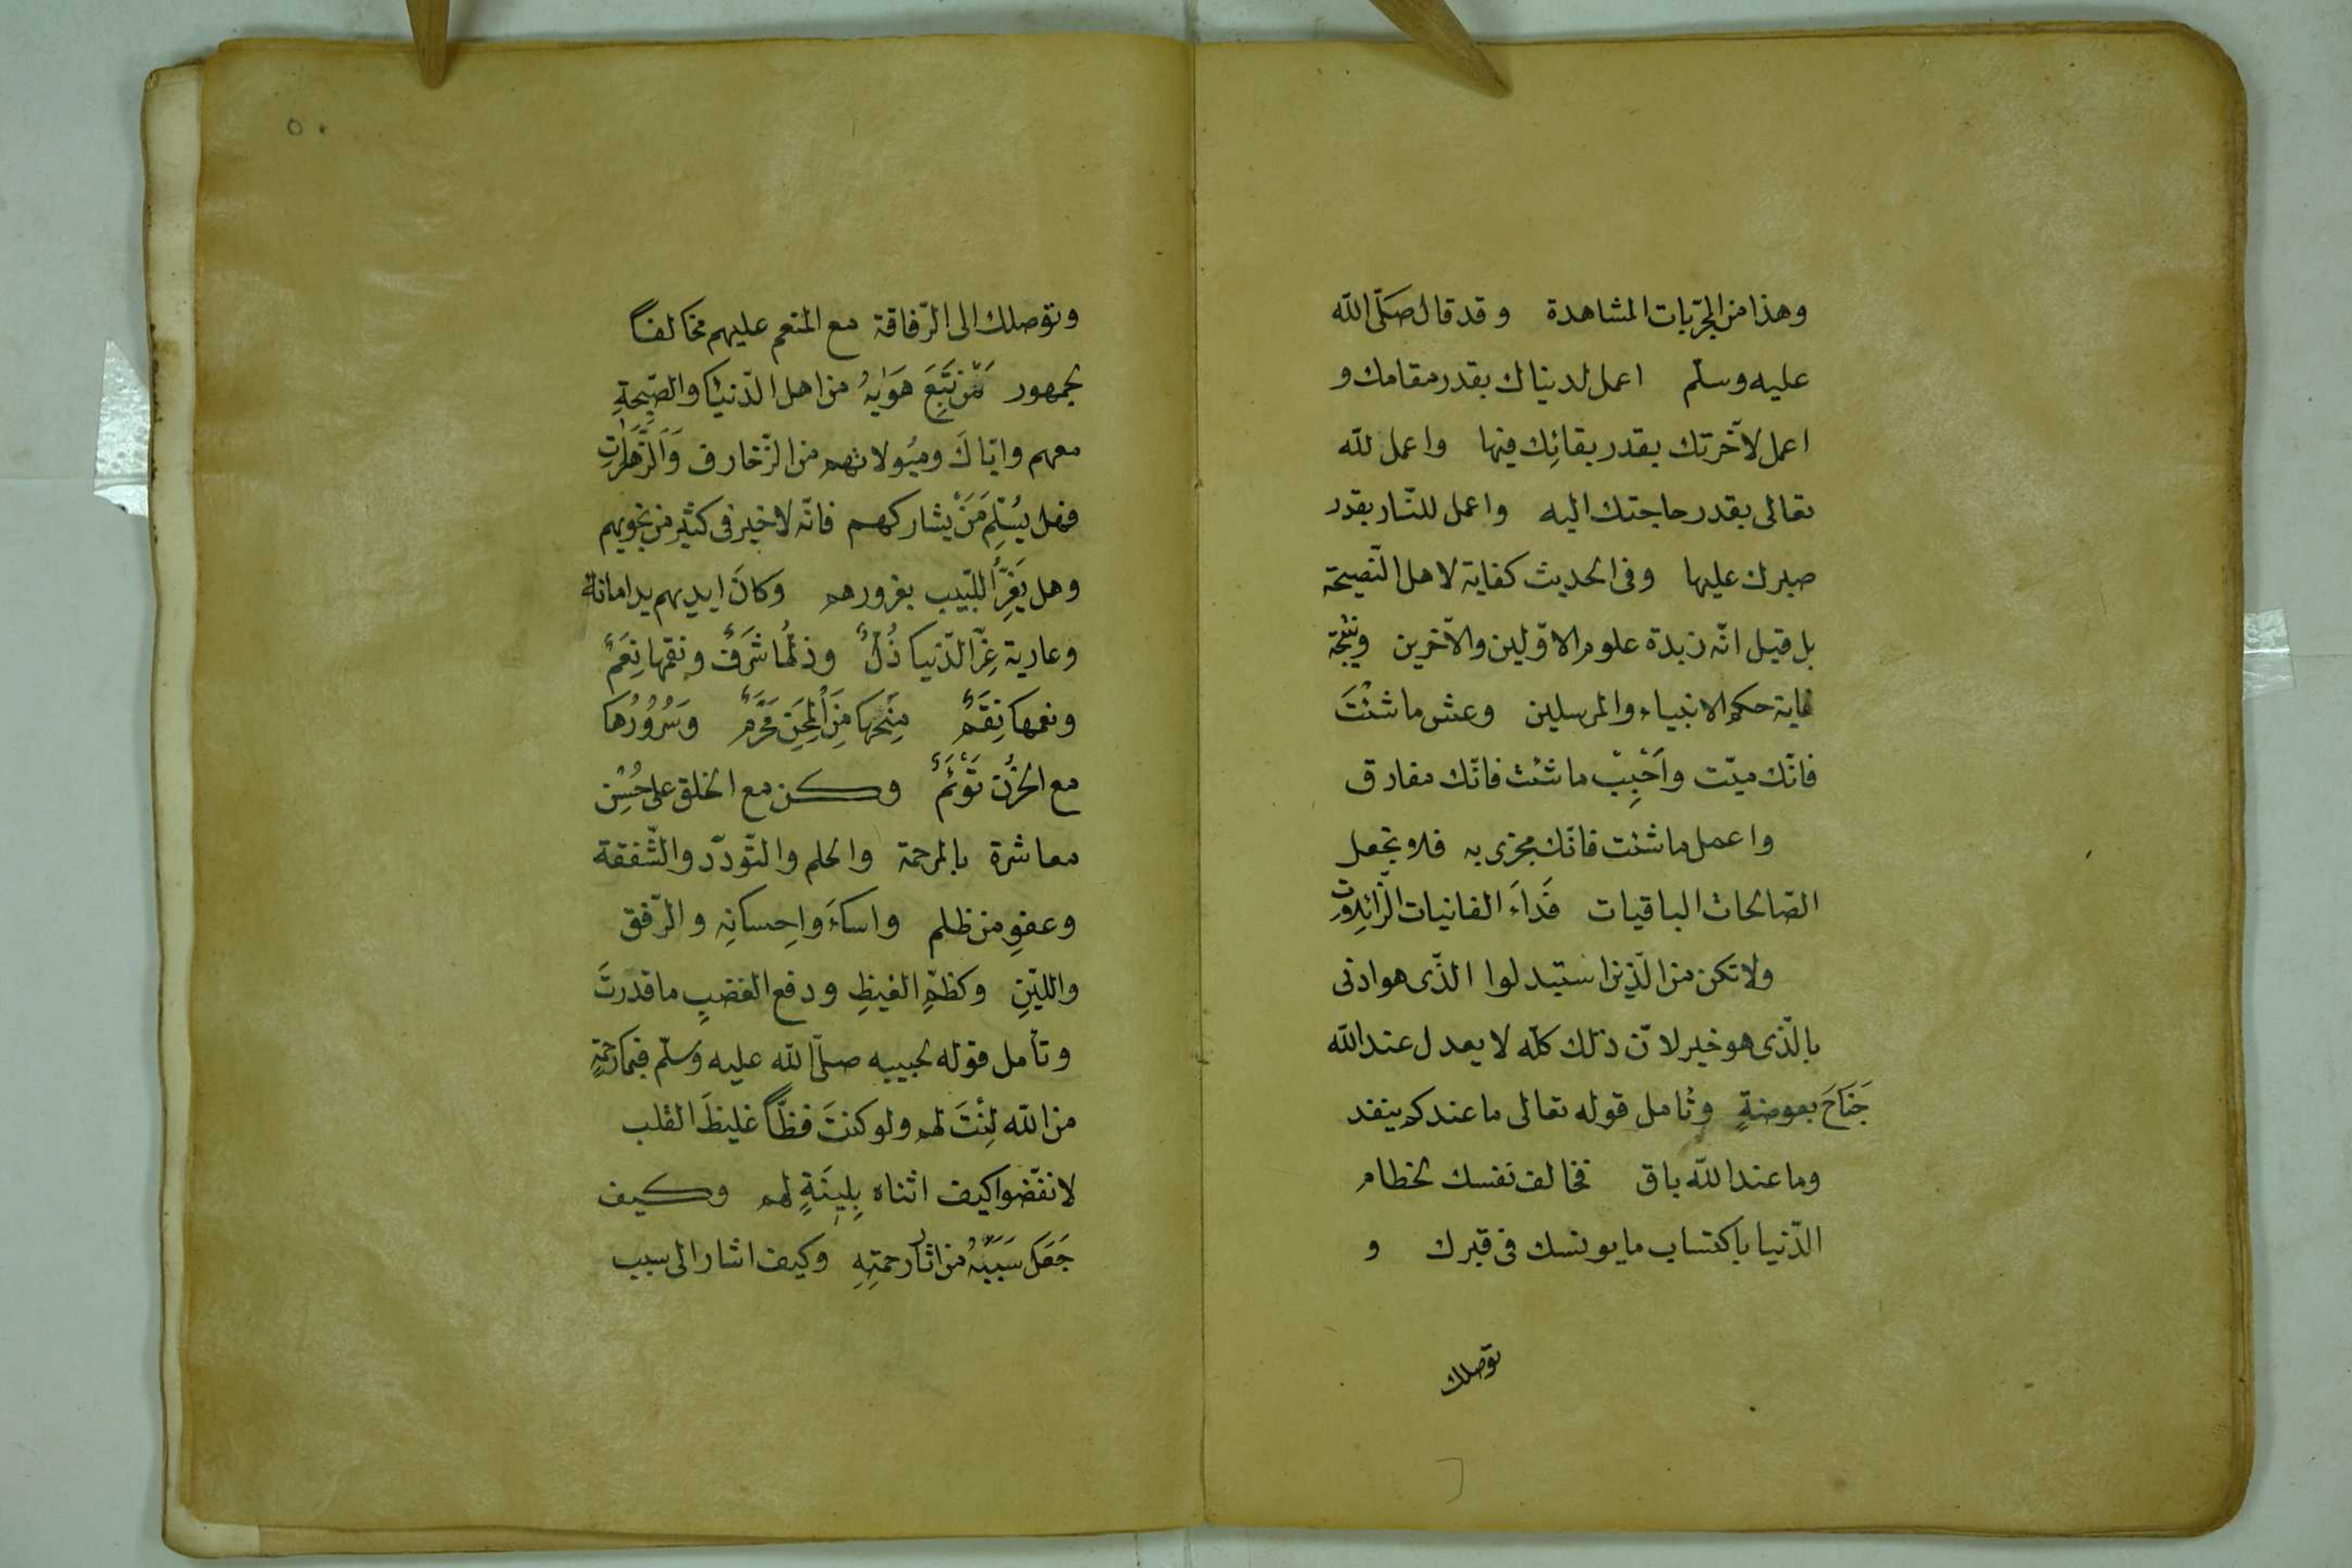 وهذا من المجرّبات المشاهدة وقد قال صَلّى الله
عليه وسلّم اعمل لدنياك بقدر مقامك و
اعمل لآخرتك بقدر بقائِك فيها واعمل لله
تعالى بقدر حاجتك اليه واعمل للنّار بقدر
صبرك عليها وفى الحديث كفاية لاهل النّصيحة
بل قيل انّه زبدة علوم الاوّلين والآخرين ونتيجة
غاية حكم الانبياء والمرسلين وعش ما شئْتَ
فانّك ميّت وأَحْبِبْ ما شئت فانّك مفارق
واعمل ما شئت فانّك مجزى به فلا تجعل
الصّالحات الباقيات فَداَءَ الفانيات الزّائِلات
ولا تكن من الّذين استبدلوا الّذى هو ادنى
بالّذى هو خير لانّ ذلك كلّه لا يعدل عند الله
جَنَاحَ بعوضةٍ وتأمل قوله تعالى ما عندكم ينفد
وما عند الله باق فخالف نفسك لحطام
الدّنيا باكتساب ما يونسك فى قبرك و
توصلك
٥٠
وتوصلك الى الرّفاقة مع المنعم عليهم مخالفاً
لجمهور مَمّن تَبِعَ هَوَيهُ من اهل الدّنيْا والصّحبةِ
معهم وايّاكَ وميُولاتهم من الزّخارف وَالزَّهَرٰتِ
فهل يسُلِمَ مَنْ يشاركهم فانّه لا خير فى كثير من نجويهم
وهل يَغِرُّ اللّبيب بغرورهم وكانَ ايديهم يد امانة
وعارية عِزّ الدّنيا ذُلٌّ وذلُّها شَرَفٌ ونقمها نِعَمٌ
ونعمها نِقَمٌ مِنَحُها مِنَ الْمِحَنِ مَحْرَمٌ وَسُرُوُرُها
مع الحزُن تَوْئَمٌ وكن مع الخلق على حُسْنِ
معاشرة بالمرحمة والحلم والتّودّد والشّفقة
وعفوِ من ظلم واساءَ واِحسانِه والرّفق
واللّينِ وكظمِ الغيظِ ودفع الغضبِ ما قدرتَ
وتأمل قوله لحبيبه صلّى الله عليه وسَلّم فبما رحمةٍ
من الله لِنْتَ لهم ولو كنتَ فظّاً غليظَ القلب
لانفضّوا كيف اثناه بِلِينَةٍ لهم وكيف
جَعَلَ سَبَبَهُ من اثار رحمتِهِ وكيف اشار الى سبب